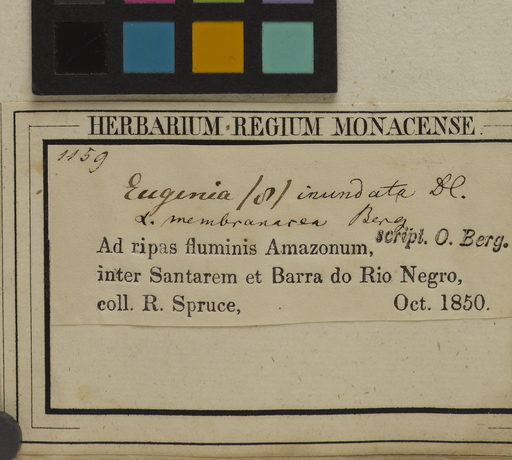 HERBARIUM REGIUM MONACENSE.
1159
Eugenia /8/ inundata DC.
α. membranacea Berg
script. O. Berg.
Ad ripas fluminis Amazonum,
inter Santarem et Barra do Rio Negro,
coll. R. Spruce, Oct. 1850.